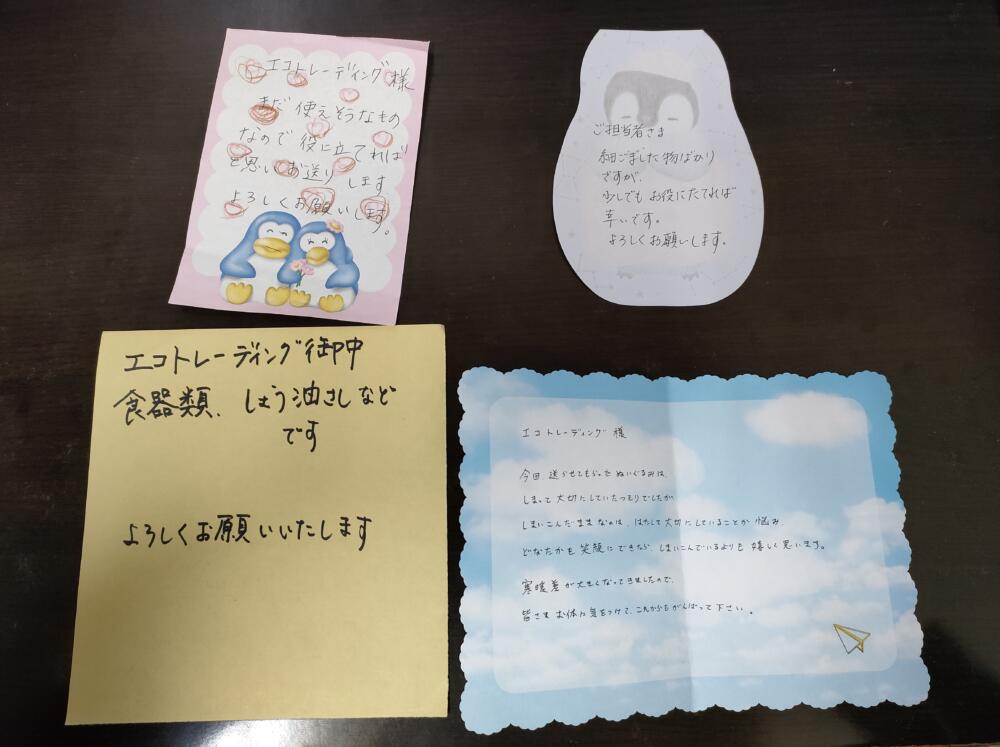 エコトレーディング様
まだ使えそうなもの
なので役に立てれば
と思いお送りします
よろしくお願いします。
ご担当者さま
細ごました物ばかり
ですが、
少しでもお役にたてれば
幸いです。
よろしくお願いします。
エコトレーディング御中
食器類、しょう油さしなど
です
よろしくお願いいたします
エコトレーディング 様
今回、送らせてもらったぬいぐるみは、
しまって大切にしていたつもりでしたが
しまいこんだままなのは、はたして大切にしていることか悩み、
どなたかを笑顔にできたら、しまいこんでいるよりも嬉しく思います。
寒暖差が大きくなってきましたので、
皆さま お体に気をつけて、これからもがんばって下さい。